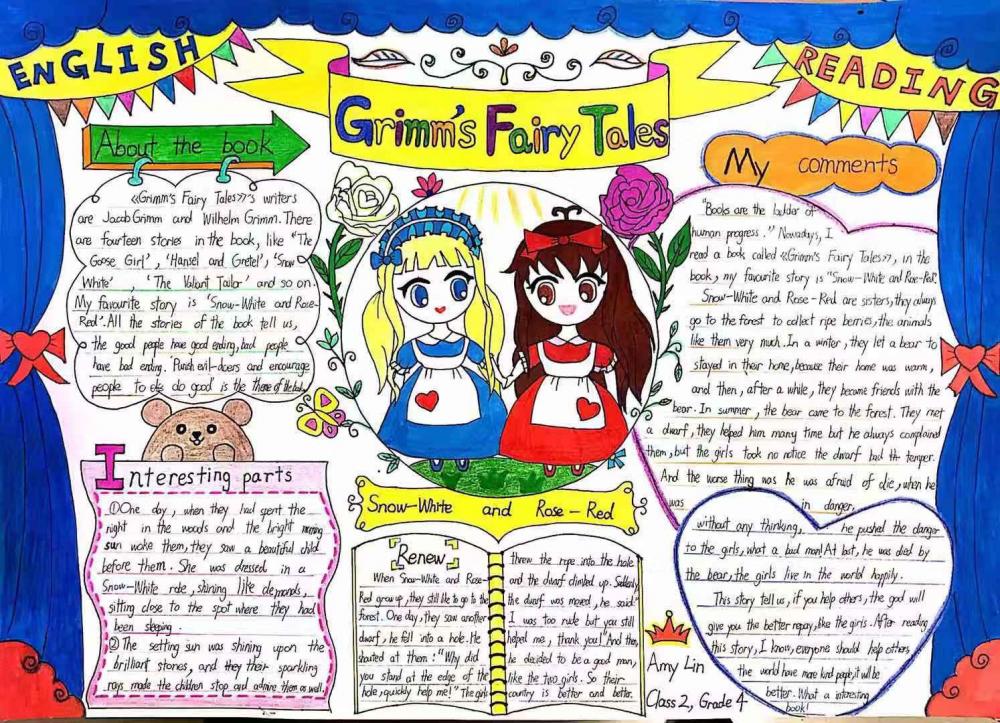 ENGLISH
READING
Grimm's Fairy Tales
About the book
《Grimm's Fairy Tales》's writers
are Jacob Grimm and Wilhelm Grimm. There
are fourteen stories in the book, like "The
Goose Girl', 'Hansel and Gretel', 'Snow
White', 'The Valiant Tailor' and so on.
My favourite story is 'Snow-White and Rose-
Red'. All the stories of the book tell us,
the good people have good ending, bad people
have bad ending. 'Punish evil-doers and encourage
people to do good is the theme of the book.
Interesting parts
①One day, when they had spent the
night in the woods and the bright morning
sun woke them, they saw a beautiful child
before them. She was dressed in a
Snow-White robe, shining like demonds,
sitting close to the spot where they had
been sleeping.
②The setting sun was shining upon the
brilliant stones, and their sparkling
rays made the children stop and admire them as well.
Snow-White and Rose-Red
Renew
When Snow-White and Rose-
Red grow up, they still like to go to the
forest. One day, they saw another
dwarf, he fell into a hole. He
shouted at them: "Why did
you stand at the edge of the
hole, quickly help me!" The girls
threw the rope into the hole
and the dwarf climbed up. Suddenly
the dwarf was moved, he said:"
I was too rude but you still
helped me, thank you!" And then,
he decided to be a good man,
like the two girls. So their
country is better and better.
My comments
"Books are the ladder of
human progress." Nowadays, I
read a book called 《Grimm's Fairy Tales》, in the
book, my favourite story is "Snow-White and Rose-Red".
Snow-White and Rose-Red are sisters, they always
go to the forest to collect ripe berries, the animals
like them very much. In a winter, they let a bear to
stayed in their home, because their home was warm,
and then, after a while, they became friends with the
bear. In summer, the bear came to the forest. They met
a dwarf, they helped him many time but he always complained
them, but the girls took no notice the dwarf bad temper.
And the worse thing was he was afraid of die, when he
was in danger,
without any thinking, he pushed the danger
to the girls, what a bad man! At last, he was died by
the bear, the girls live in the world happily.
This story tell us, if you help others, the god will
give you the better repay, like the girls. After reading
this story, I know, everyone should help others,
the world have more kind people, it will be
better. What a interesting
book!
Amy Lin
Class 2, Grade 4